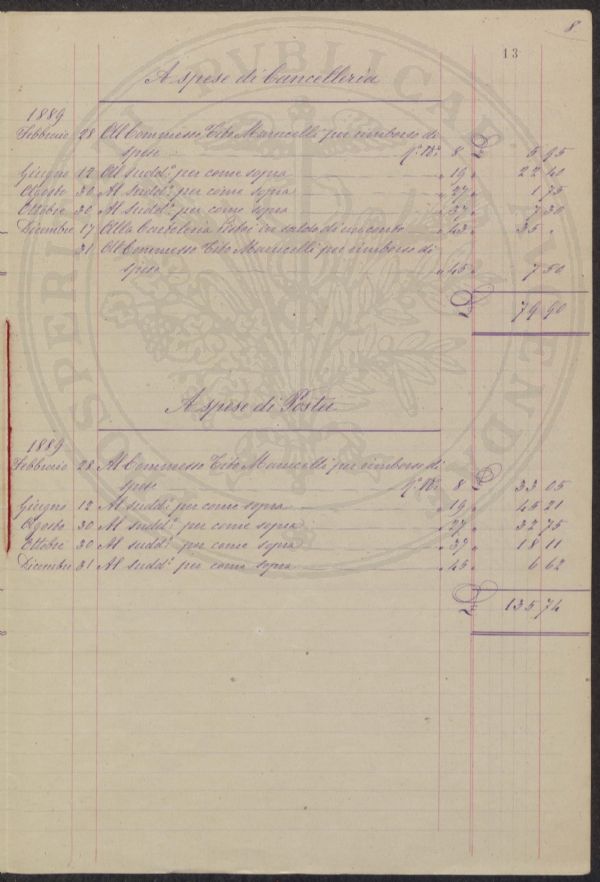 8
13
A spese di Cancelleria
1889
Febbraio 28 Al Commesso Tito Marucelli per rimborso di
spese 8 £ 5 95
Giugno 12 Al sudd.º per come sopra " 19 " 22 40
Agosto 30 Al sudd.º per come sopra " 27 " 1 75
Ottobre 30 Al sudd.º per come sopra " 37 " 7 30
Dicembre 17 Alla Cartoleria in saldo di un conto " 43 " 35 "
31 Al Commesso Tito Marucelli per rimborso di
spese " 45 " 7 50
£ 79 90
A spese di Posta
1889
Febbraio 28 Al Commesso Tito Marucelli per rimborso di
spese 8 £ 33 05
Giugno 12 Al sudd.º per come sopra " 19 " 45 21
Agosto 30 Al sudd.º per come sopra " 27 " 32 75
Ottobre 30 Al sudd.º per come sopra " 37 " 18 11
Dicembre 31 Al sudd.º per come sopra " 45 " 6 62
£ 135 74